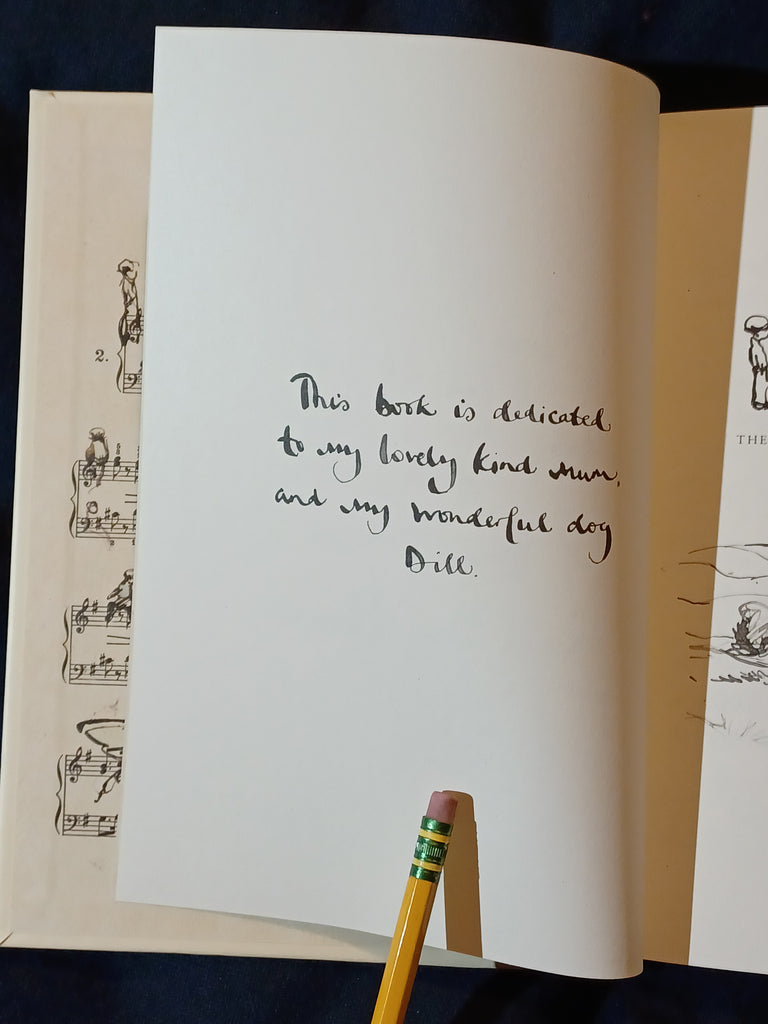 This book is dedicated
to my lovely kind Mum,
and my wonderful dog
Dill.
2.
THE